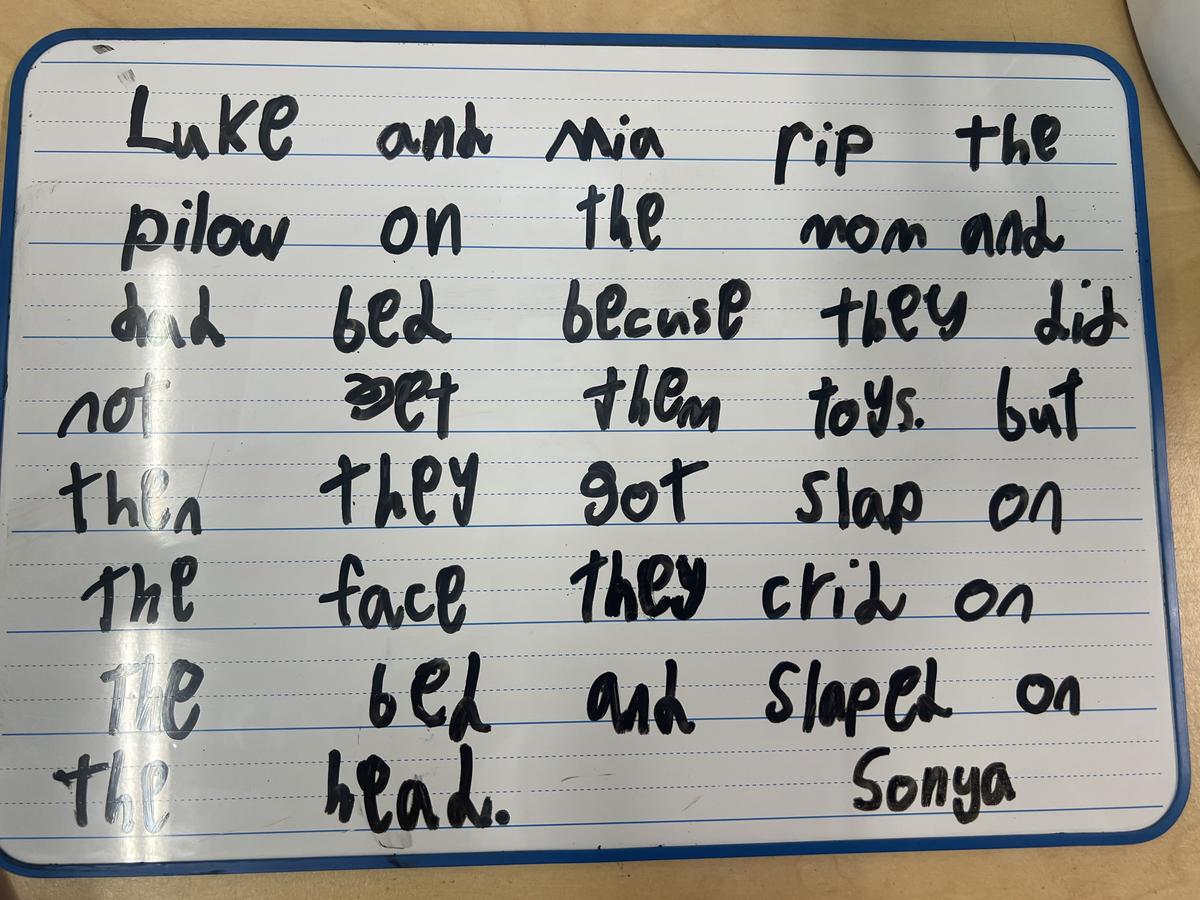 Luke and Mia rip the
pilow on the mom and
dad bed becuse they did
not get them toys. but
then they got slap on
the face they crid on
The bed and slaped on
the head. Sonya